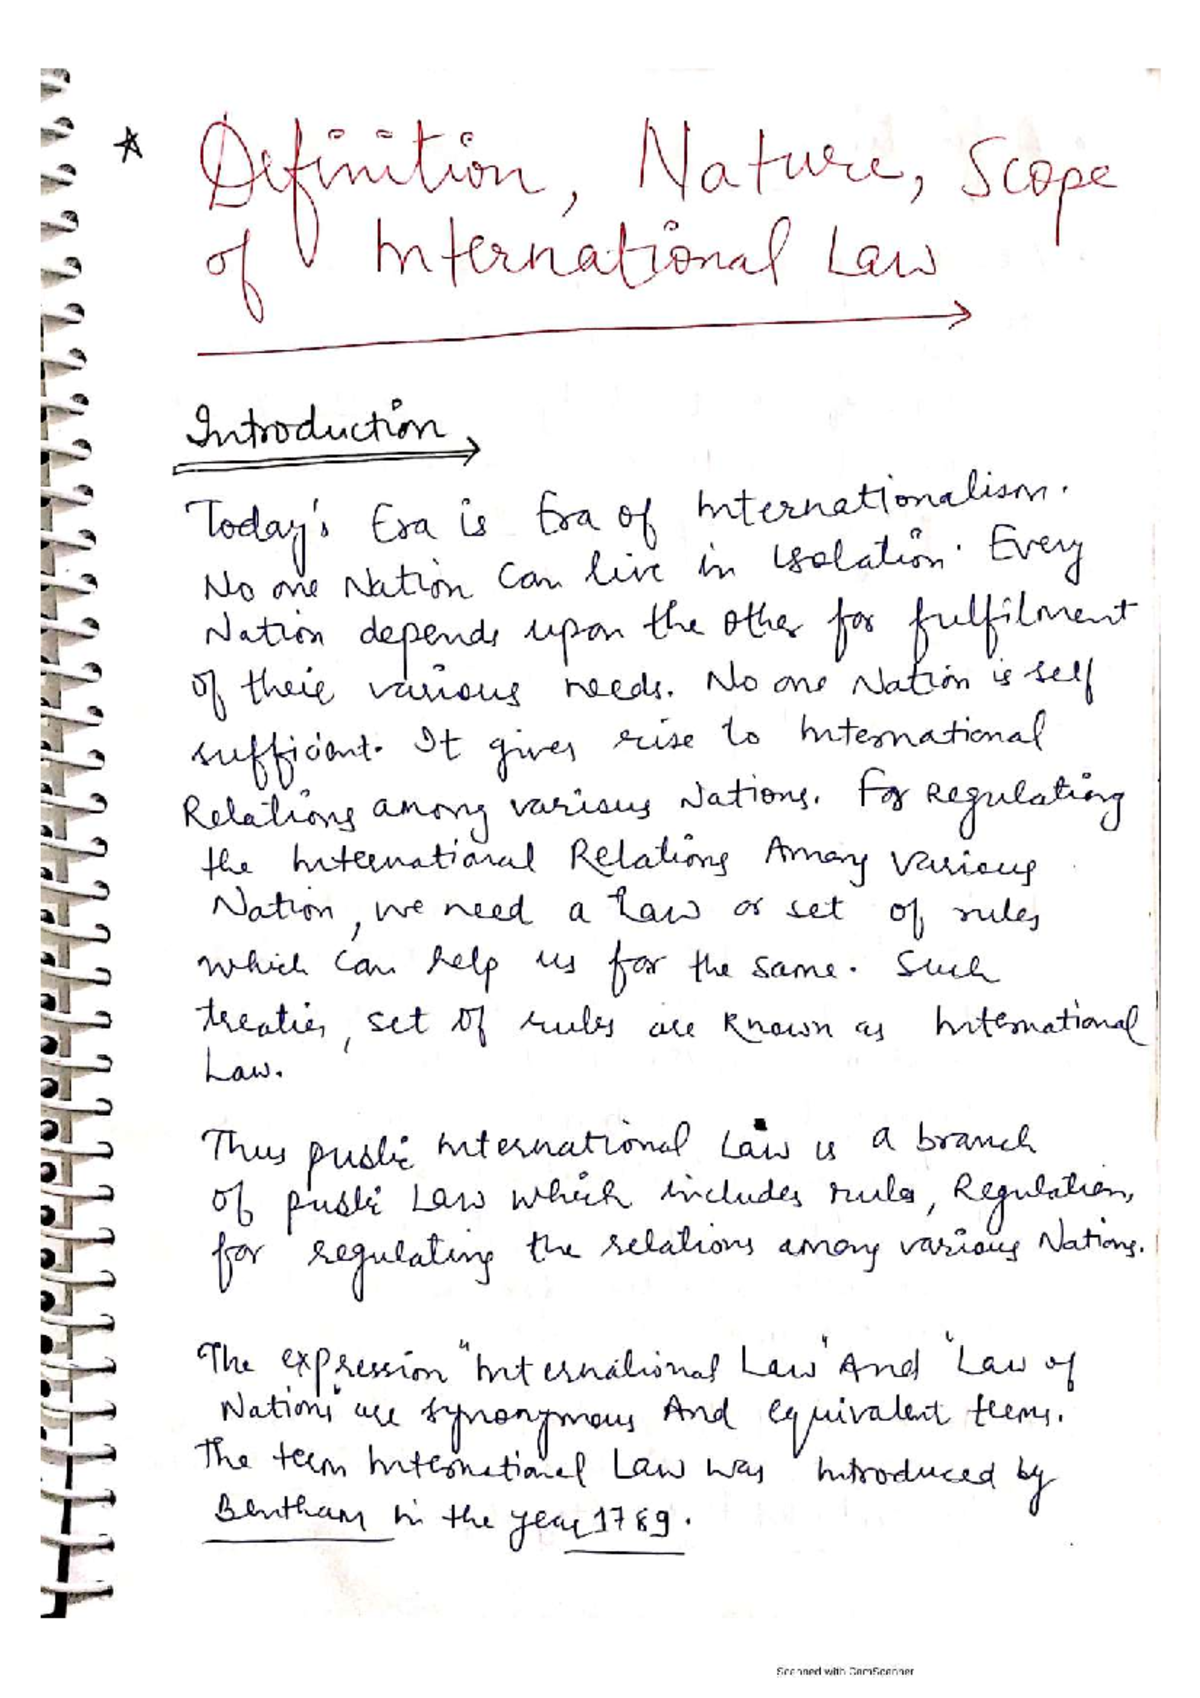 Definition, Nature, Scope
of International Law
Introduction
Today's Era is Era of Internationalism.
No one Nation Can live in isolation. Every
Nation depends upon the other for fulfilment
of their various needs. No one Nation is self
sufficient. It gives rise to International
Relations among various Nations. For Regulating
the International Relations Among various
Nation, we need a Law or set of rules
which can help us for the same. Such
treaties, set of rules are known as International
Law.
Thus public International Law is a branch
of public Law which includes rules, Regulation,
for regulating the relations among various Nations.
The expression "International Law" And "Law of
Nations" are synonymous And equivalent terms.
The term International Law was introduced by
Bentham in the year 1789.
Scanned with CamScanner